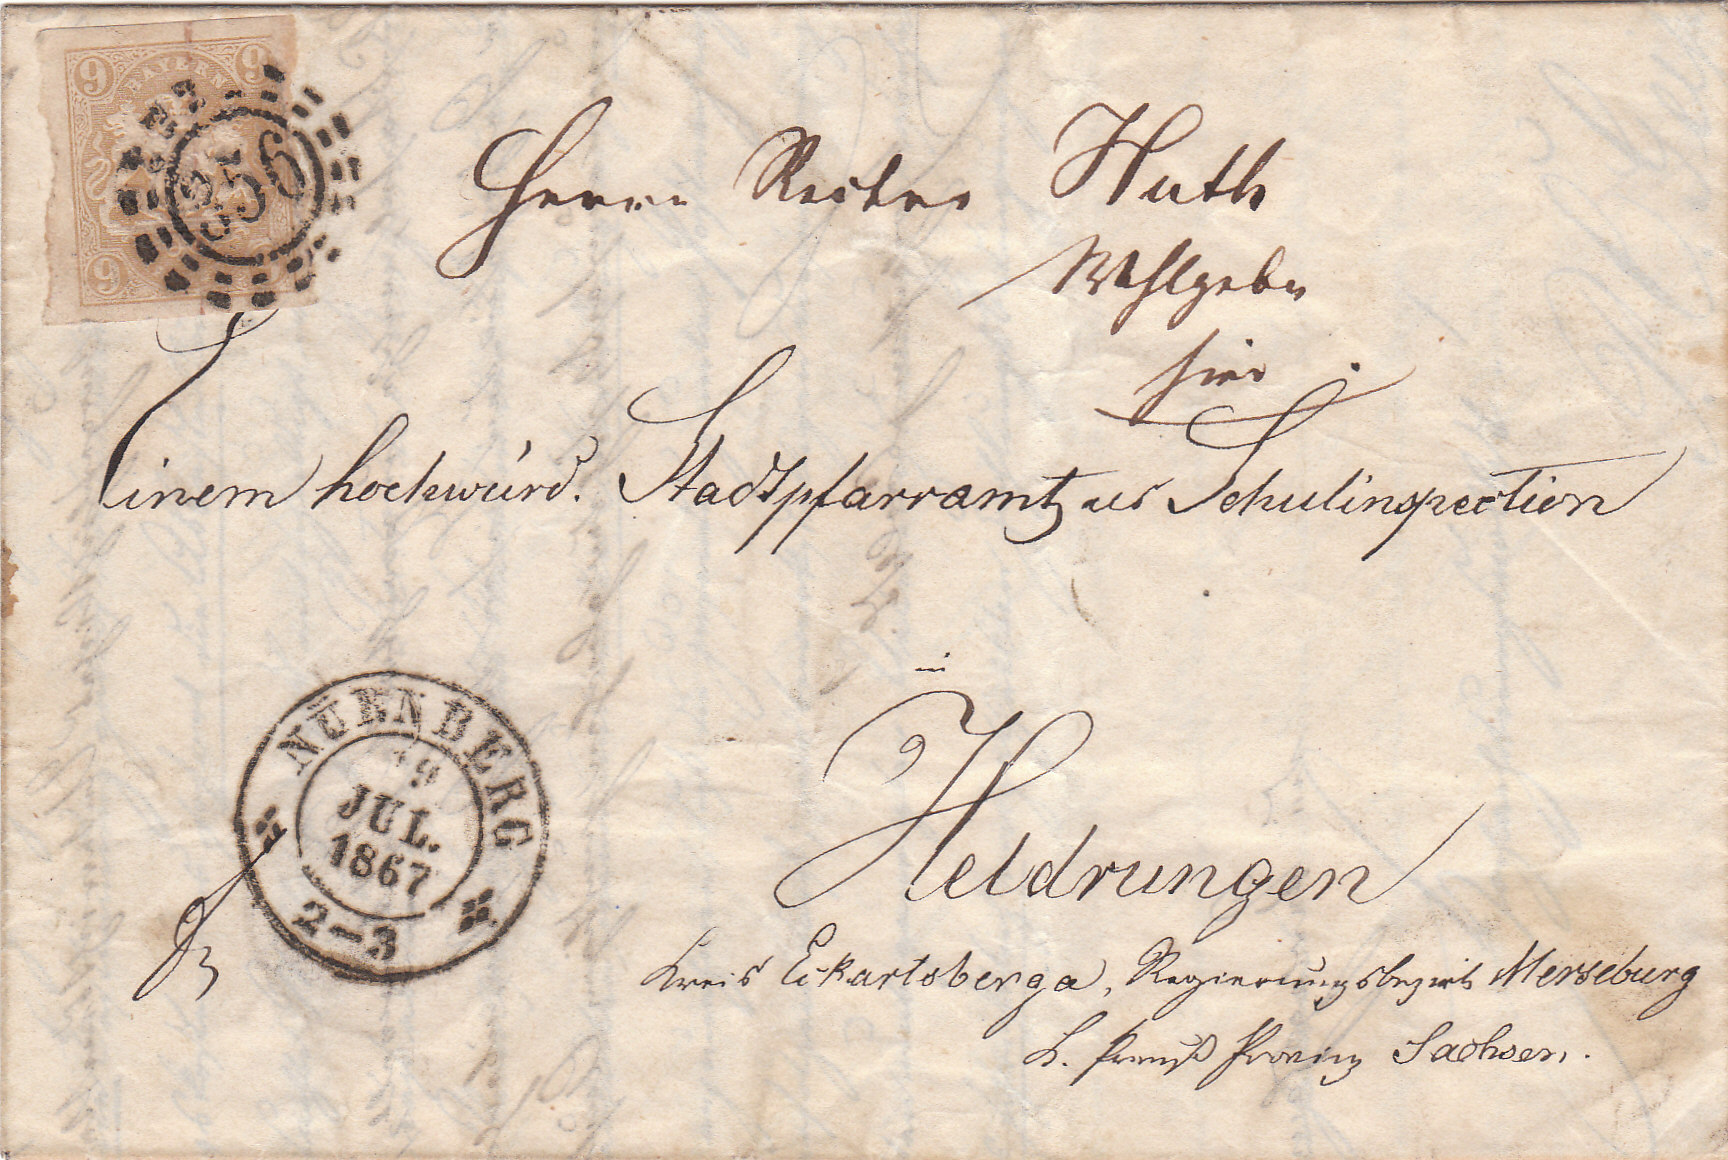 9 BAYERN 9
356
9
Herrn Rector Huth
Wohlgebn
hier
Einem hochwürd. Stadtpfarramt als Schulinspection
in
Heldrungen
Kreis Eckartsberga, Regierungsbezirk Merseburg
K. Preuß Provinz Sachsen.
NÜRNBERG
19
JUL.
1867
2-3